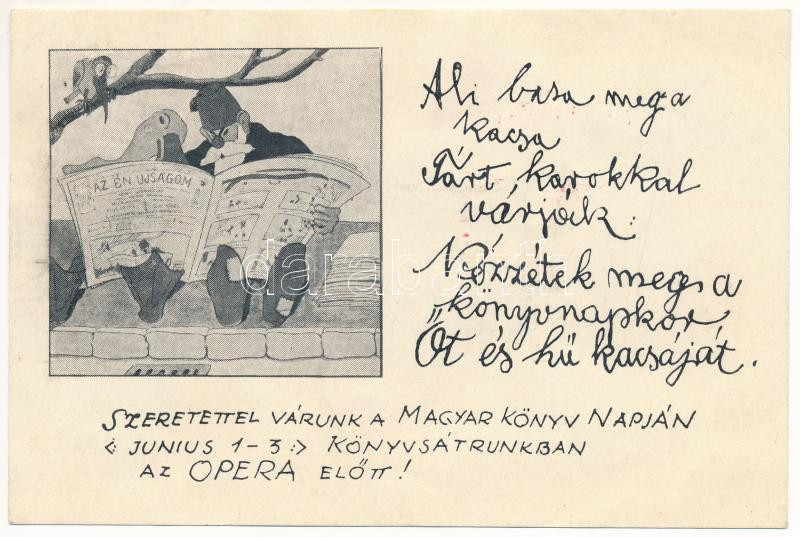 AZ ÉN UJSÁGOM
Ali basa meg a
kacsa
Tárt karokkal
várják:
Nézzétek meg a
könyvnapkor
Őt és hű kacsáját.
SZERETETTEL VÁRUNK A MAGYAR KÖNYV NAPJÁN
<: JUNIUS 1-3 :> KÖNYVSÁTRUNKBAN
AZ OPERA ELŐTT!